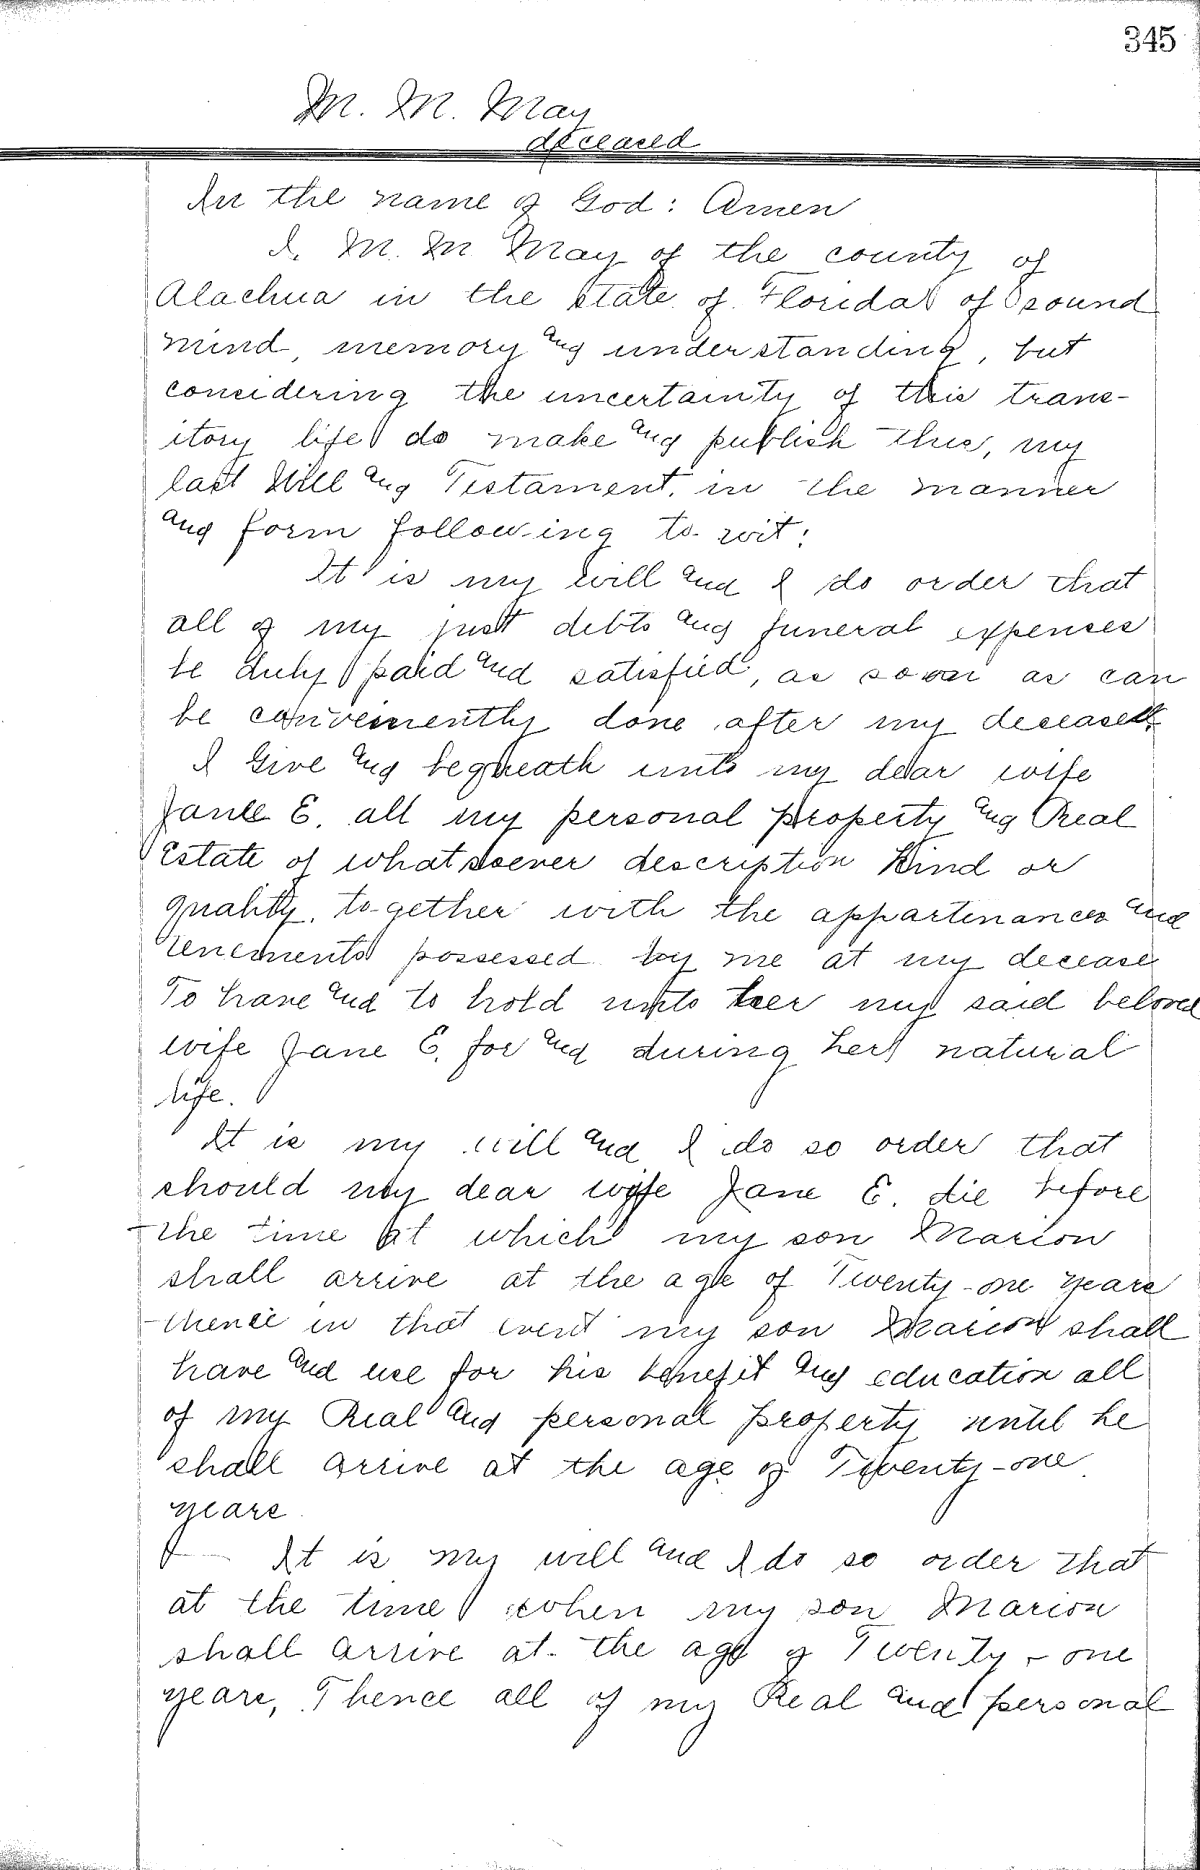 345
M. M. May
deceased
In the name of God: Amen
I, M. M. May of the county of
Alachua in the state of Florida of sound
mind, memory and understanding, but
considering the uncertainty of this trans-
itory life do make and publish this, my
last Will and Testament, in the manner
and form follow-ing to-wit:
It is my will and I do order that
all of my just debts and funeral expenses
be duly paid and satisfied, as soon as can
be conveniently done after my decease.
I Give and bequeath unto my dear wife
Jane E. all my personal property and Real
Estate of whatsoever description Kind or
quality, to-gether with the appartenances and
tenements possessed by me at my decease
To have and to hold unto her my said beloved
wife Jane E. for and during her natural
life.
It is my will and I do so order that
should my dear wife Jane E. die before
the time at which my son Marion
shall arrive at the age of Twenty-one years
thence in that event my son Marion shall
have and use for his benefit and education all
of my Real and personal property until he
shall arrive at the age of Twenty-one
years
It is my will and I do so order that
at the time when my son Marion
shall arrive at the age of Twenty-one
years, Thence all of my Real and personal